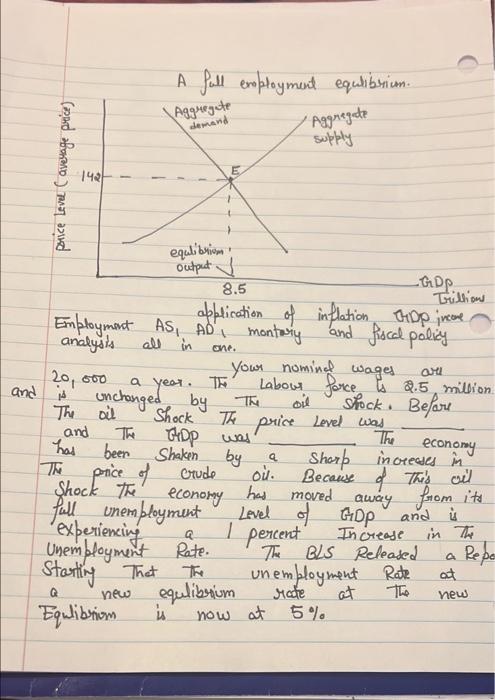 A full employment equlibrium.
Aggregate
demand
Aggregate
supply
price Level (average price)
142
E
equlibrium
output
8.5
GDp
Trillions
application of inflation GDp income
Employment AS, AD, montary and fiscal policy
analysis all in one.
Your nominal wages are
20,000 a year. The Labour force is 2.5 million
and is unchanged by The oil Shock. Before
The oil Shock The price Level was ______
and The GDp was ______ The economy
has been Shaken by a Sharp increases in
The price of crude oil. Because of This oil
Shock The economy has moved away from its
full unemployment Level of GDp and is
experiencing a 1 percent Increase in The
Unemployment Rate. The BLS Released a Repo
Starting That The unemployment Rate at
a new equlibrium rate at The new
Equlibrium is now at 5%